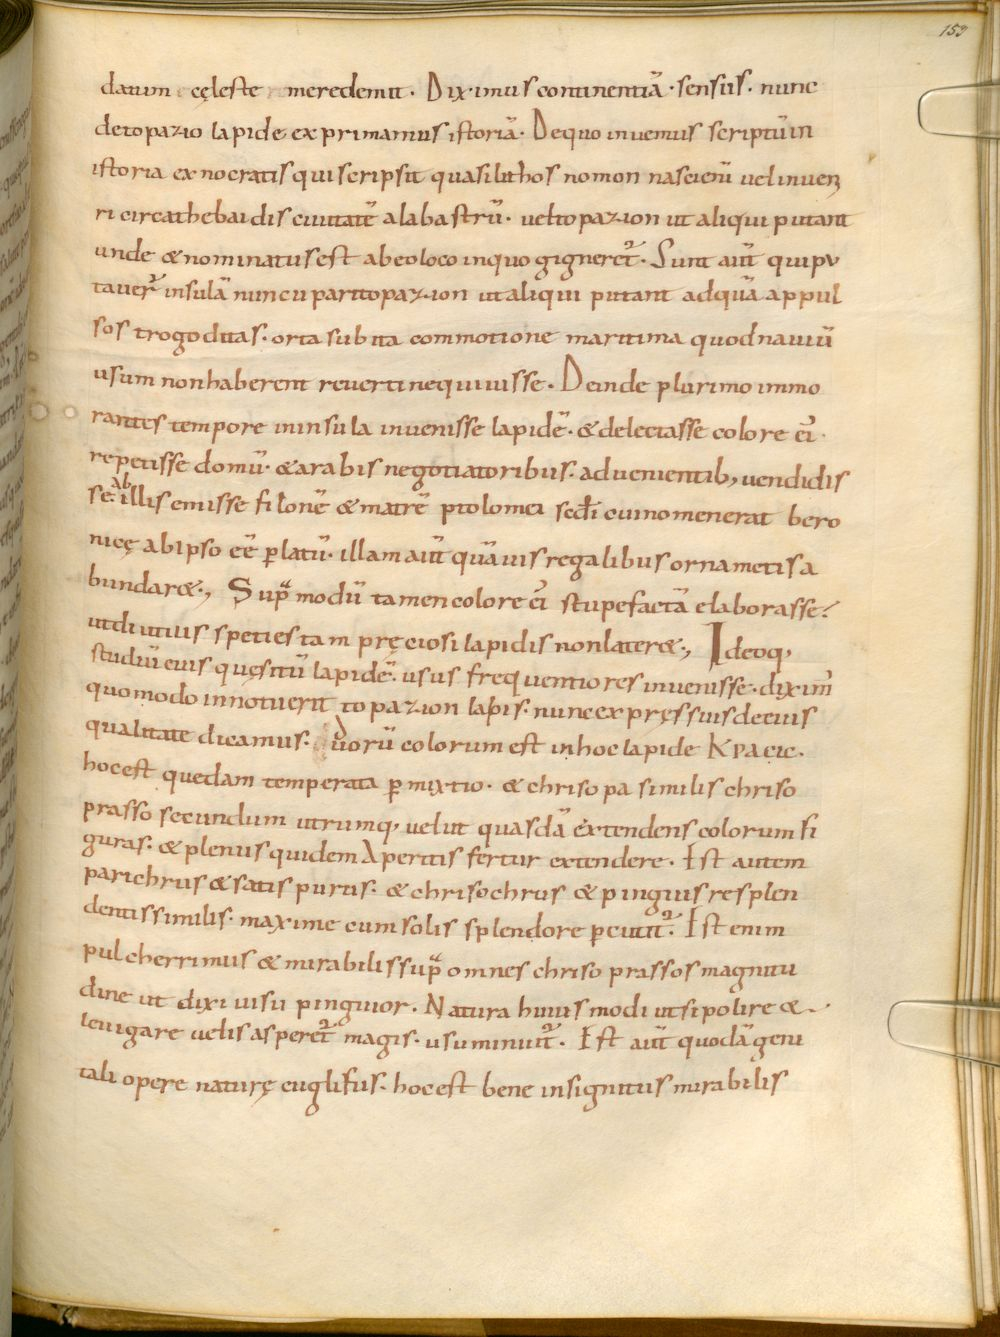 153
datum cęleste meredemit. Diximus continentiā. sensus. nunc
detopazio lapide exprimamus istoriā. Dequo inuemus scriptū in
istoria exnocratis qui scripsit quasilithos nomon nascienū uel inuen
ri circathebaidis ciuitatē alabastrū. ueltopazion ut aliqui putant
unde & nominatus est abeoloco inquo gigneret̄. Sunt aūt qui pu
tauer̄ insulā nuncupari topazion ut aliqui putant adquā appul
sos trogoditas. orta subita commotione maritima quod nauiū
usum non haberent reuerti nequiuisse. Deinde plurimo immo
rantes tempore ininsula inuenisse lapidē. & delectasse colore ei̅.
repetisse domū. & arabis negotiatoribus. aduenientib, uendidis
se. ab illis emisse filonē & matrē ptolomei scd̄i cuinomenerat bero
nicę abipso eē p̲latū. illam aūt quāuis regalibus ornametis a
bundar&., Sup̄ modū tamen colore ei̅ stupefactā elaborasse.
utdiutius speties tam pręciosi lapidis nonlater&., Ideoq,
studiū eius quęsitū lapidē. usus frequentiores inuenisse. dixim̄
quomodo innotuerit topazion lapis. nunc expręssius deeius
qualitate dicamus. quorū colorum est inhoc lapide Κραcιc.
hocest quedam temperata p̲mixtio. & chrisopa similis chriso
prasso secundum utrumq, uelut quasdā extendens colorum fi
guras. & plenus quidem Apertis fertur extendere. Est autem
parichrus & satis purus. & chrisochrus & pinguis resplen
dentissimilis. maxime cum solis splendore p̲cutit̄. Est enim
pulcherrimus & mirabilis sup̄ omnes chrisoprassos magnitu
dine ut dixi uisu pinguior. Natura huius modi ut si polire &
leuigare uelis asperet̄ magis. usu minuit̄. Est aūt quodā geni
tali opere naturę euglifus. hocest bene insignitus mirabilis